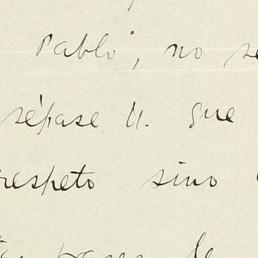 Pablo", no se
sépase U. que
respeto sino